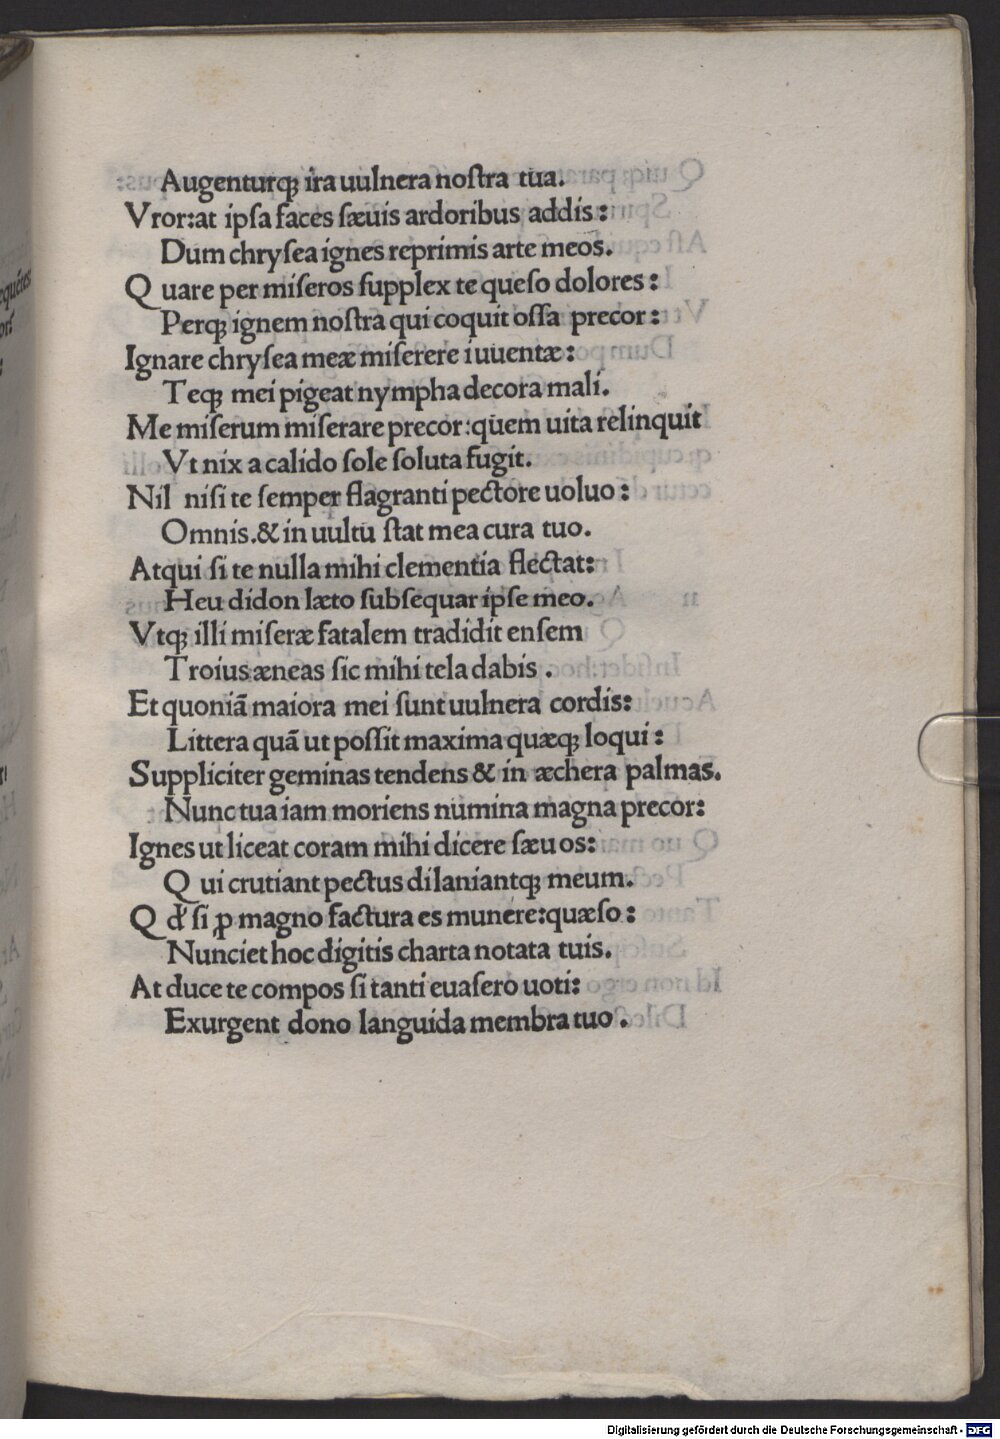 Augenturqꝫ ira uulnera noſtra tua.
Vror:at ipſa faces ſæuis ardoribus addis:
Dum chryſea ignes reprimis arte meos.
Quare per miſeros ſupplex te queſo dolores:
Perqꝫ ignem noſtra qui coquit oſſa precor:
Ignare chryſea meæ miſerere iuuentæ:
Teqꝫ mei pigeat nympha decora mali.
Me miſerum miſerare precor:quem uita relinquit
Vt nix a calido ſole ſoluta fugit.
Nil niſi te ſemper flagranti pectore uoluo:
Omnis.& in uultu ſtat mea cura tuo.
Atqui ſi te nulla mihi clementia flectat:
Heu didon læto ſubſequar ipſe meo.
Vtqꝫ illi miſeræ fatalem tradidit enſem
Troius æneas ſic mihi tela dabis.
Et quoniā maiora mei ſunt uulnera cordis:
Littera quā ut poſſit maxima quæqꝫ loqui:
Suppliciter geminas tendens & in æchera palmas.
Nunc tua iam moriens numina magna precor:
Ignes ut liceat coram mihi dicere ſæuos:
Qui crutiant pectus dilaniantqꝫ meum.
Qđ ſi ꝓ magno factura es munere:quæſo:
Nunciet hoc digitis charta notata tuis.
At duce te compos ſi tanti euaſero uoti:
Exurgent dono languida membra tuo.
Digitalisierung gefördert durch die Deutsche Forschungsgemeinschaft - DFG